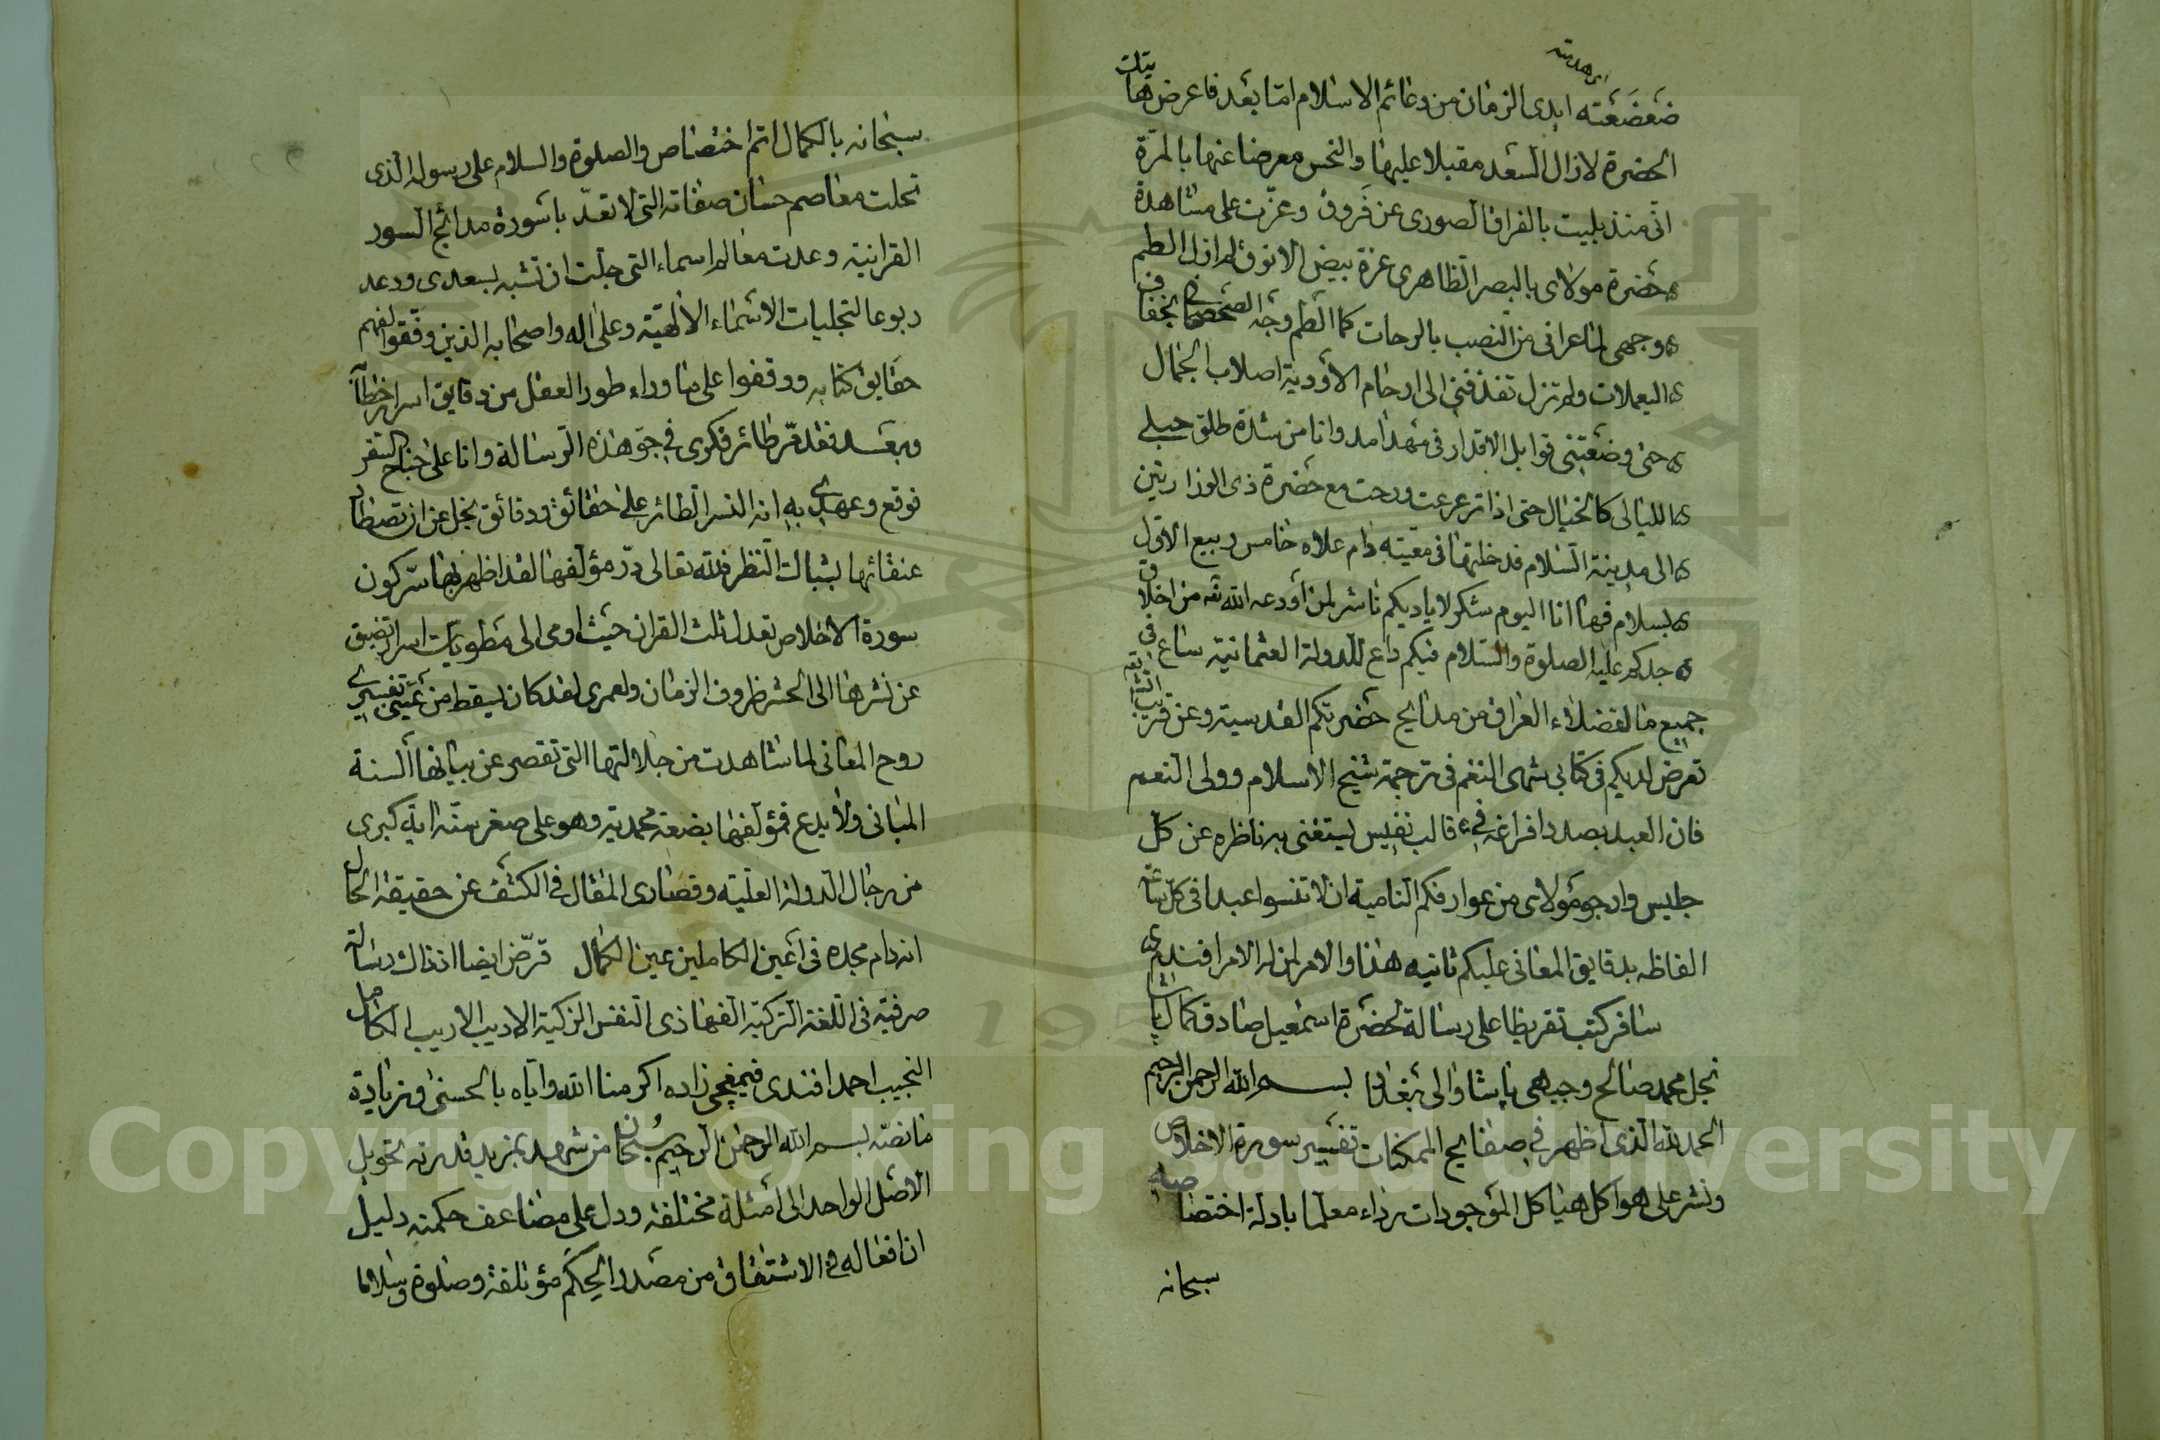 ضعضعته ايدى الزمان من دعائم الاسلام اما بعد فاعرض هاتيك
الحضرة لا زال السعد مقبلا عليها والنحس معرضا عنها بالمرة
انى منذ بليت بالفراق الصورى عن فروق وعزت على مشاهدة
حضرة مولاى بالبصر الظاهرى عزة بيض الانوق لم ازل الطم
وجهى لما عرانى من النصب بالراحات كما الطم وجه الصحصحان بخفاف
اليعملات ولم تزل تقذفنى الى ارحام الاودية اصلاب الجمال
حتى وضعتنى قوابل الاقدار فى مهد آمد وانا من شدة طلق حبلى
الليالى كالخيال حتى اذا ترعرعت ورحت مع حضرة ذى الوزارتين
الى مدينة السلام فدخلتها فى معيته دام علاه خامس ربيع الاول
بسلام فها انا اليوم شكر لاياديكم ناشر لمن اودعه الله تعه من اخلاق
جدكم عليه الصلوة والسلام فيكم داع للدولة العثمانية ساع فى
جميع ما لفضلاء العراق من مدايح حضرتكم القدسية وعن قريب ان شاء الله تعه
تعرض لديكم فى كتابى شهى النغم فى ترجمة شيخ الاسلام وولى النعم
فان العبد بصدد افراغه فى قالب نفيس يستغنى به ناظره عن كل
جليس وارجو مولاى من عوارفكم النامية ان لا تنسوا عبدا فى كل شانه
الفاظه بدقايق المعانى عليكم ثانيه هذا والامر لمن له الامر افنديم
سافر كتب تقريظا على رسالة لحضرة اسمعيل صادق كمال پاشا
نجل محمد صالح وجيهى پاشا والى بغداد بسم الله الرحمن الرحيم
الحمد لله الذى اظهر فى صفايح الممكنات تفسير سورة الاخلاص
ونشر على هواكل هياكل الموجودات رداء معلما بادلة اختصاصه
سبحانه
سبحانه بالكمال اتم اختصاص والصلوة والسلام على رسوله الذى
تحلت معاصم حسان صفاته التى لا تعد باسورة مدائح السور
القرانية وعدت معالم اسماء التى جلت ان تشبه بسعدى ودعد
ربوعا لتجليات الاسماء الالهية وعلى اله واصحابه الذين وفقوا لفهم
حقايق كتابه ووقفوا على ما وراء طور العقل من دقايق اسرار خطابه
وبعد فقد مر طائر فكرى فى جو هذه الرسالة وانا على جناح السفر
فوقع وعهدى به انه النسر الطائر على حقائق ودقائق يجل عن ان تصطاد
عنقائها بشباك النظر فلله تعالى در مؤلفها لقد اظهر بها سر كون
سورة الاخلاص تعدل ثلث القران حيث اومى الى مطويات اسرار تضيق
عن نشرها الى الحشر ظروف الزمان ولعمرى لقد كان يسقط من عينى تفسيرى
روح المعانى لما شاهدت من جلالتها التى تقصر عن بيانها السنة
المبانى ولا بدع فمؤلفها بضعة محمدية وهو على صغر سنه اية كبرى
من رجال الدولة العلية وقصارى المقال فى الكشف عن حقيقة الحال
انه دام مجده فى اعين الكاملين عين الكمال قرض ايضا اذ ذاك رسالة
صرفية فى اللغة التركية الفها ذى النفس الزكية الاديب الاريب الكامل
النجيب احمد افندى قيمقچى زاده اكرمنا الله واياه بالحسنى وزيادة
ما نصه بسم الله الرحمن الرحيم سبحان من شهد بمزيد قدرته تحويل
الاصل الواحد الى امثلة مختلفة ودل على مضاعف حكمته دليل
ان افعاله فى الاشتقاق من مصدر الحكم مؤتلفة وصلوة وسلاما
Copyright © King Saud University